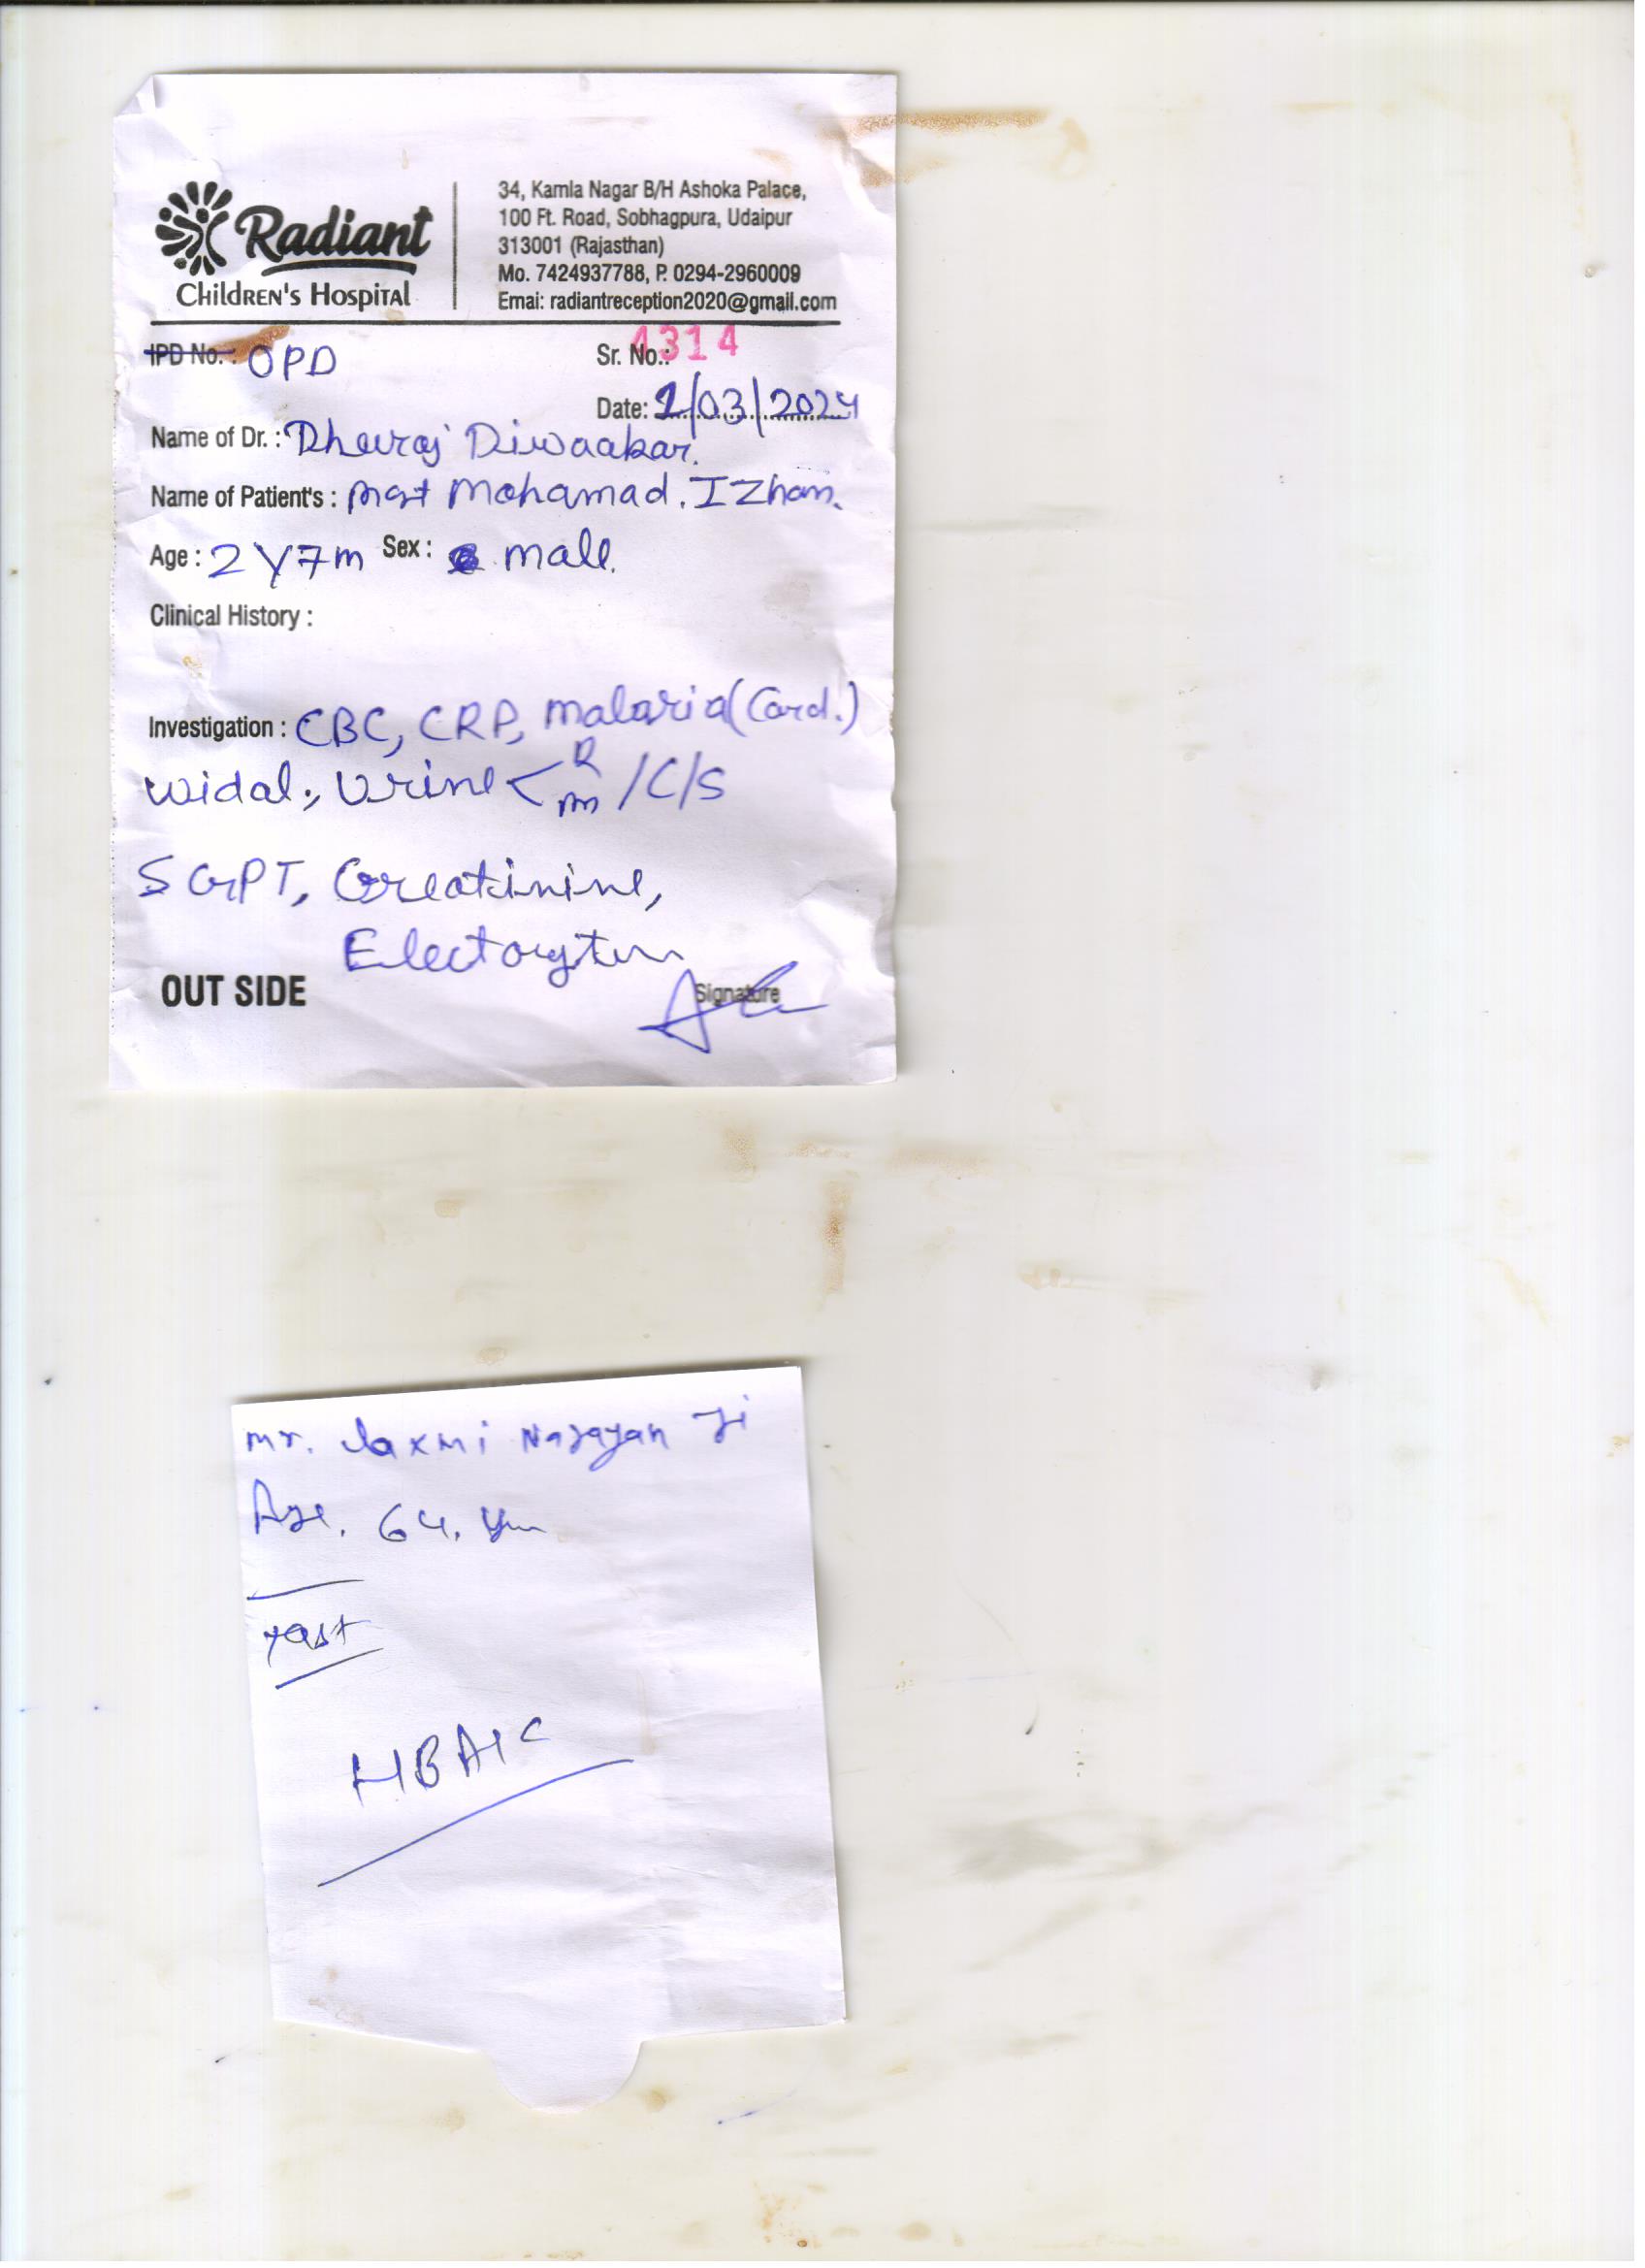 Radiant
Children's Hospital
34, Kamla Nagar B/H Ashoka Palace,
100 Ft. Road, Sobhagpura, Udaipur
313001 (Rajasthan)
Mo. 7424937788, P. 0294-2960009
Emai: radiantreception2020@gmail.com
IPD No. : OPD
Sr. No.: 4314
Date: 1/03/2024
Name of Dr. : Dheeraj Diwaakar.
Name of Patient's : Mast Mohamad. Izhan.
Age : 2Y7m Sex : male.
Clinical History :
Investigation : CBC, CRP, Malaria (Card.)
Widal, Urine < R M /C/S
SGPT, Creatinine,
OUT SIDE
Signature
Mr. Laxmi Narayan Ji
Age. 64.
HBA1C